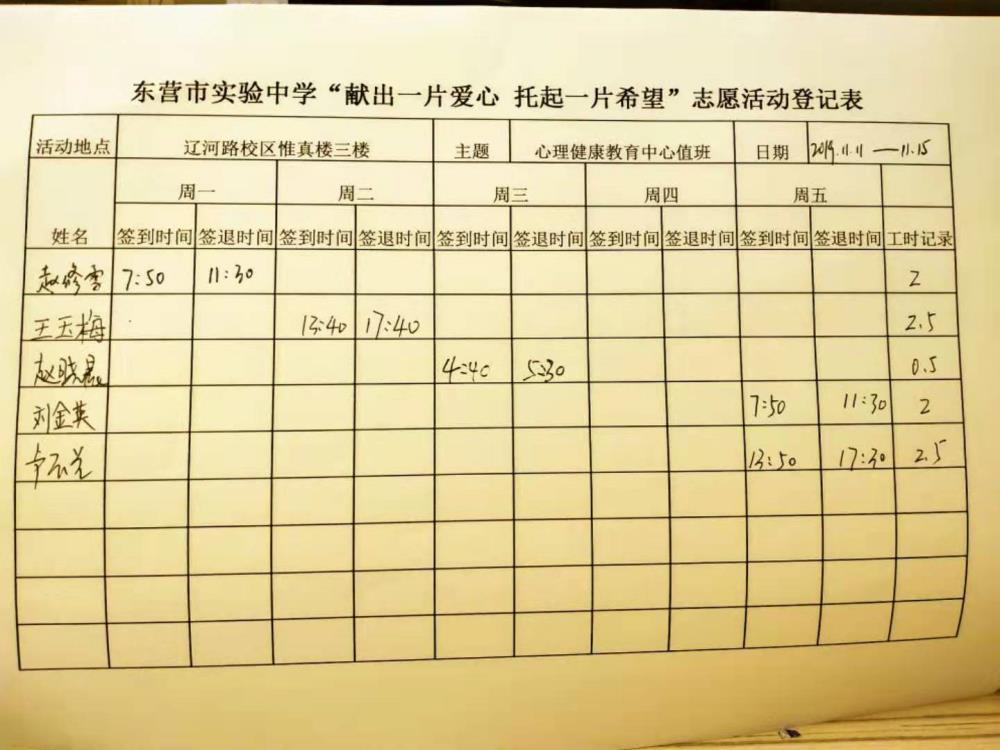 东营市实验中学“献出一片爱心 托起一片希望”志愿活动登记表
活动地点 辽河路校区惟真楼三楼 主题 心理健康教育中心值班 日期 2019.11.11—11.15
周一 周二 周三 周四 周五
姓名 签到时间 签退时间 签到时间 签退时间 签到时间 签退时间 签到时间 签退时间 签到时间 签退时间 工时记录
赵修雪 7:50 11:30 2
王玉梅 13:40 17:40 2.5
赵晓磊 4:40 5:30 0.5
刘金英 7:50 11:30 2
13:50 17:30 2.5